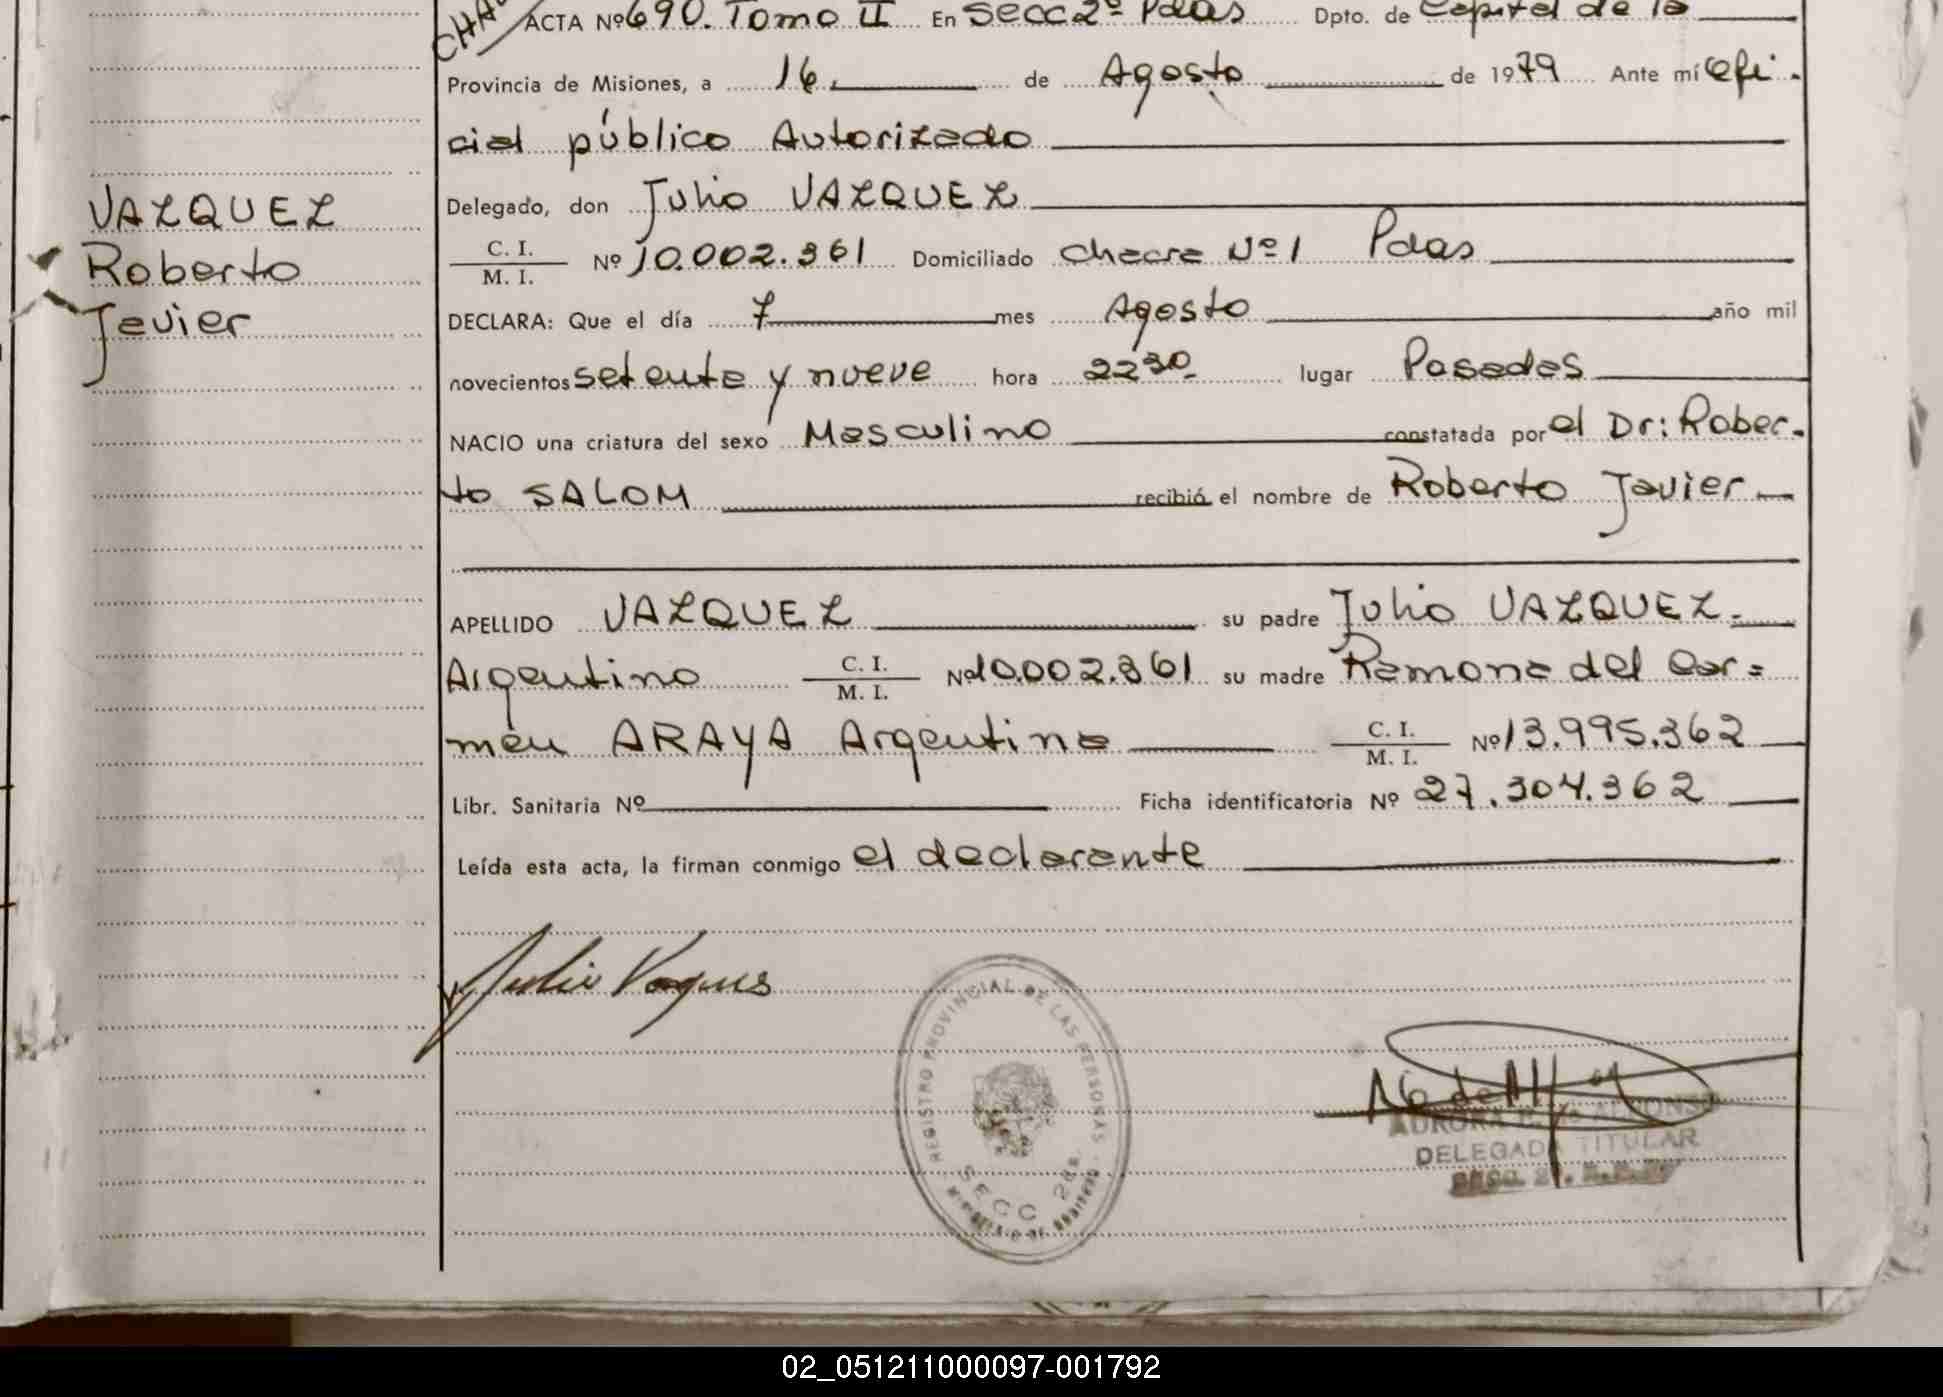 ACTA Nº 690. Tomo II En Secc 2º Pdas Dpto. de Capital de la
Provincia de Misiones, a 16 de Agosto de 1979 Ante mí Ofi-
cial público Autorizado
Delegado, don Julio VAZQUEZ
C. I.
M. I. Nº 10.002.361 Domiciliado Chacra Nº 1 Pdas
DECLARA: Que el día 7 mes Agosto año mil
novecientos setenta y nueve hora 22 30 lugar Posadas
NACIO una criatura del sexo Masculino constatada por el Dr: Rober-
to SALOM recibió el nombre de Roberto Javier
APELLIDO VAZQUEZ su padre Julio VAZQUEZ-
Argentino C. I.
M. I. Nº 10.002.361 su madre Ramona del Car=
men ARAYA Argentina C. I.
M. I. Nº 13.995.362
Libr. Sanitaria Nº Ficha identificatoria Nº 27.304.362
Leída esta acta, la firman conmigo el declarante
VAZQUEZ
Roberto
Javier
Julio Vazques
REGISTRO PROVINCIAL DE LAS PERSONAS
SECC 2da.
AURORA ALFONSO
DELEGADA TITULAR
02_051211000097-001792